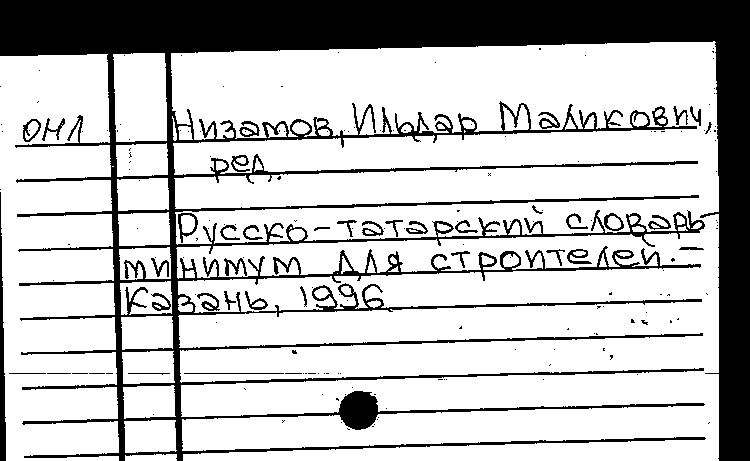 ОНЛ
Низамов, Ильдар Маликович,
ред.
Русско-татарский словарь-
минимум для строителей.-
Казань, 1996